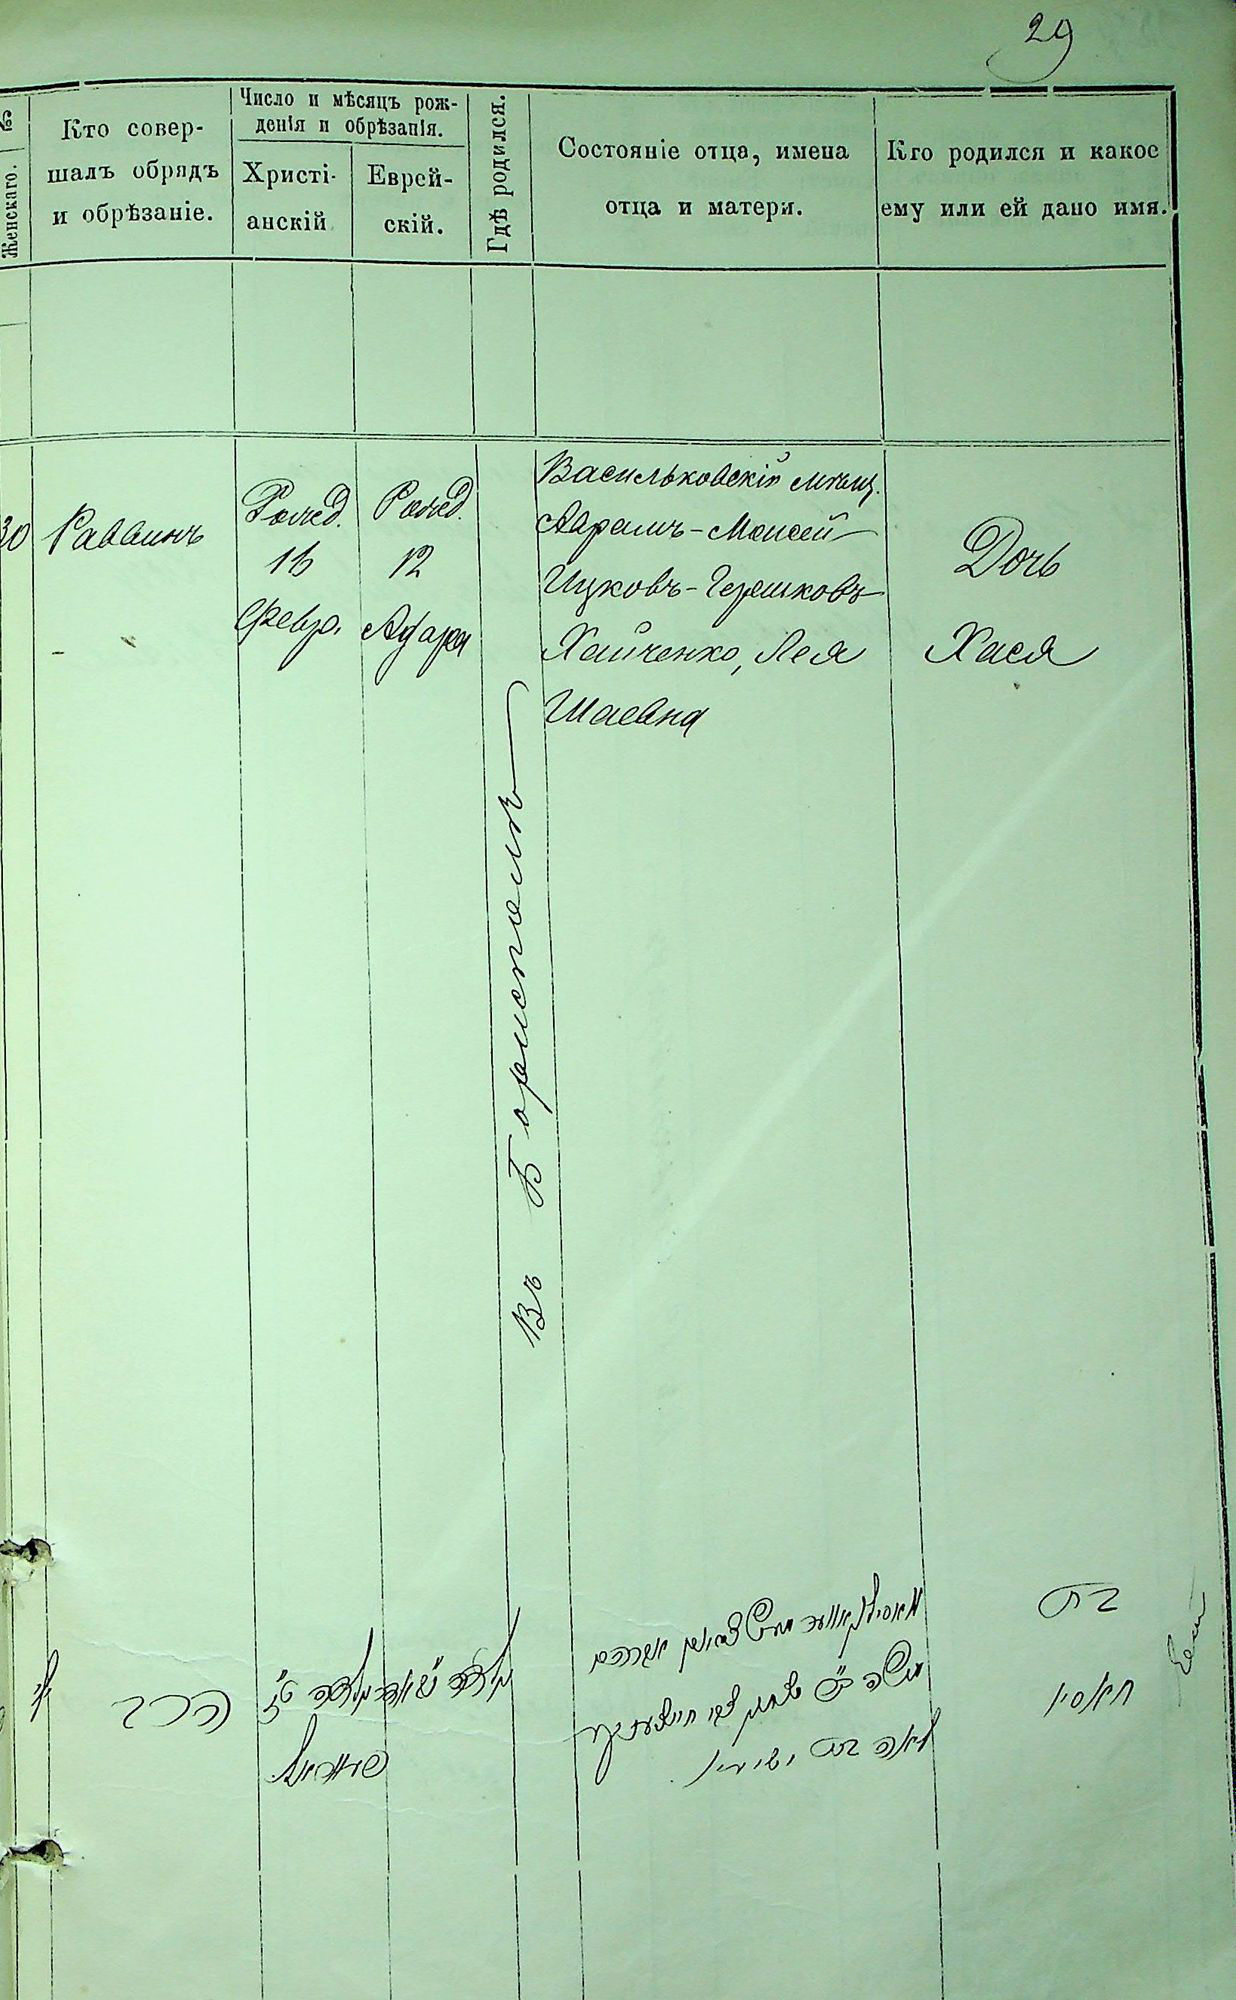 29
№
Женскаго.
Кто совер-
шалъ обрядъ
и обрѣзаніе.
Число и мѣсяцъ рож-
денія и обрѣзанія.
Христі-
анскій
Еврей-
скій.
Гдѣ родился.
Состояніе отца, имена
отца и матери.
Кто родился и какое
ему или ей дано имя.
30
Раввинъ
Рожд.
16
Февр.
Рожд.
12
Адара
Въ Борисполѣ
Васильковскій мѣщ.
Аврамъ-Моисей
Ицковъ-Гершковъ
Хайченко, Лея
Шаевна
Дочь
Хася
ל
הרב
בת
חאסיא
לאה בת ישעי